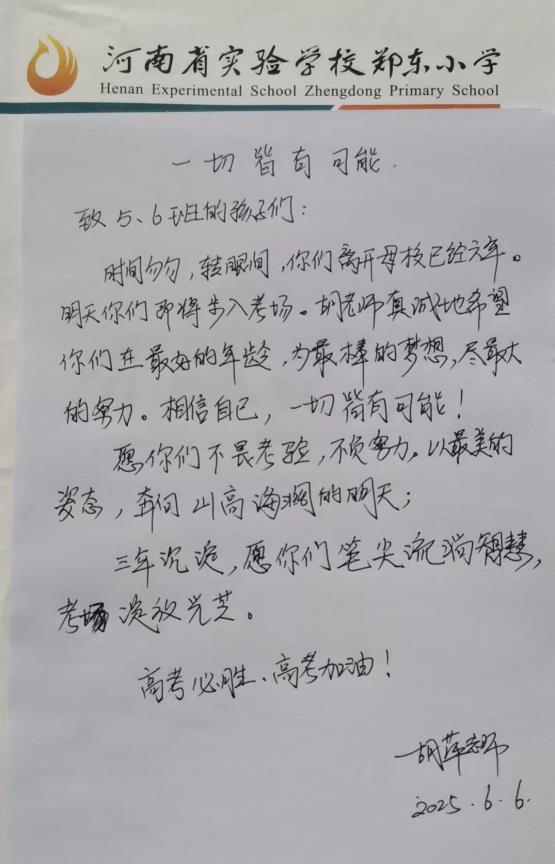 河南省实验学校郑东小学
Henan Experimental School Zhengdong Primary School
一切皆有可能.
致5、6班的孩子们：
时间匆匆，转眼间，你们离开母校已经六年。
明天你们即将步入考场。胡老师真诚地希望
你们在最好的年龄，为最棒的梦想，尽最大
的努力。相信自己，一切皆有可能！
愿你们不畏考验，不负努力。以最美的
姿态，奔向山高海阔的明天；
三年沉淀，愿你们笔尖流淌智慧，
考场绽放光芒。
高考必胜、高考加油！
胡萍老师
2025.6.6.